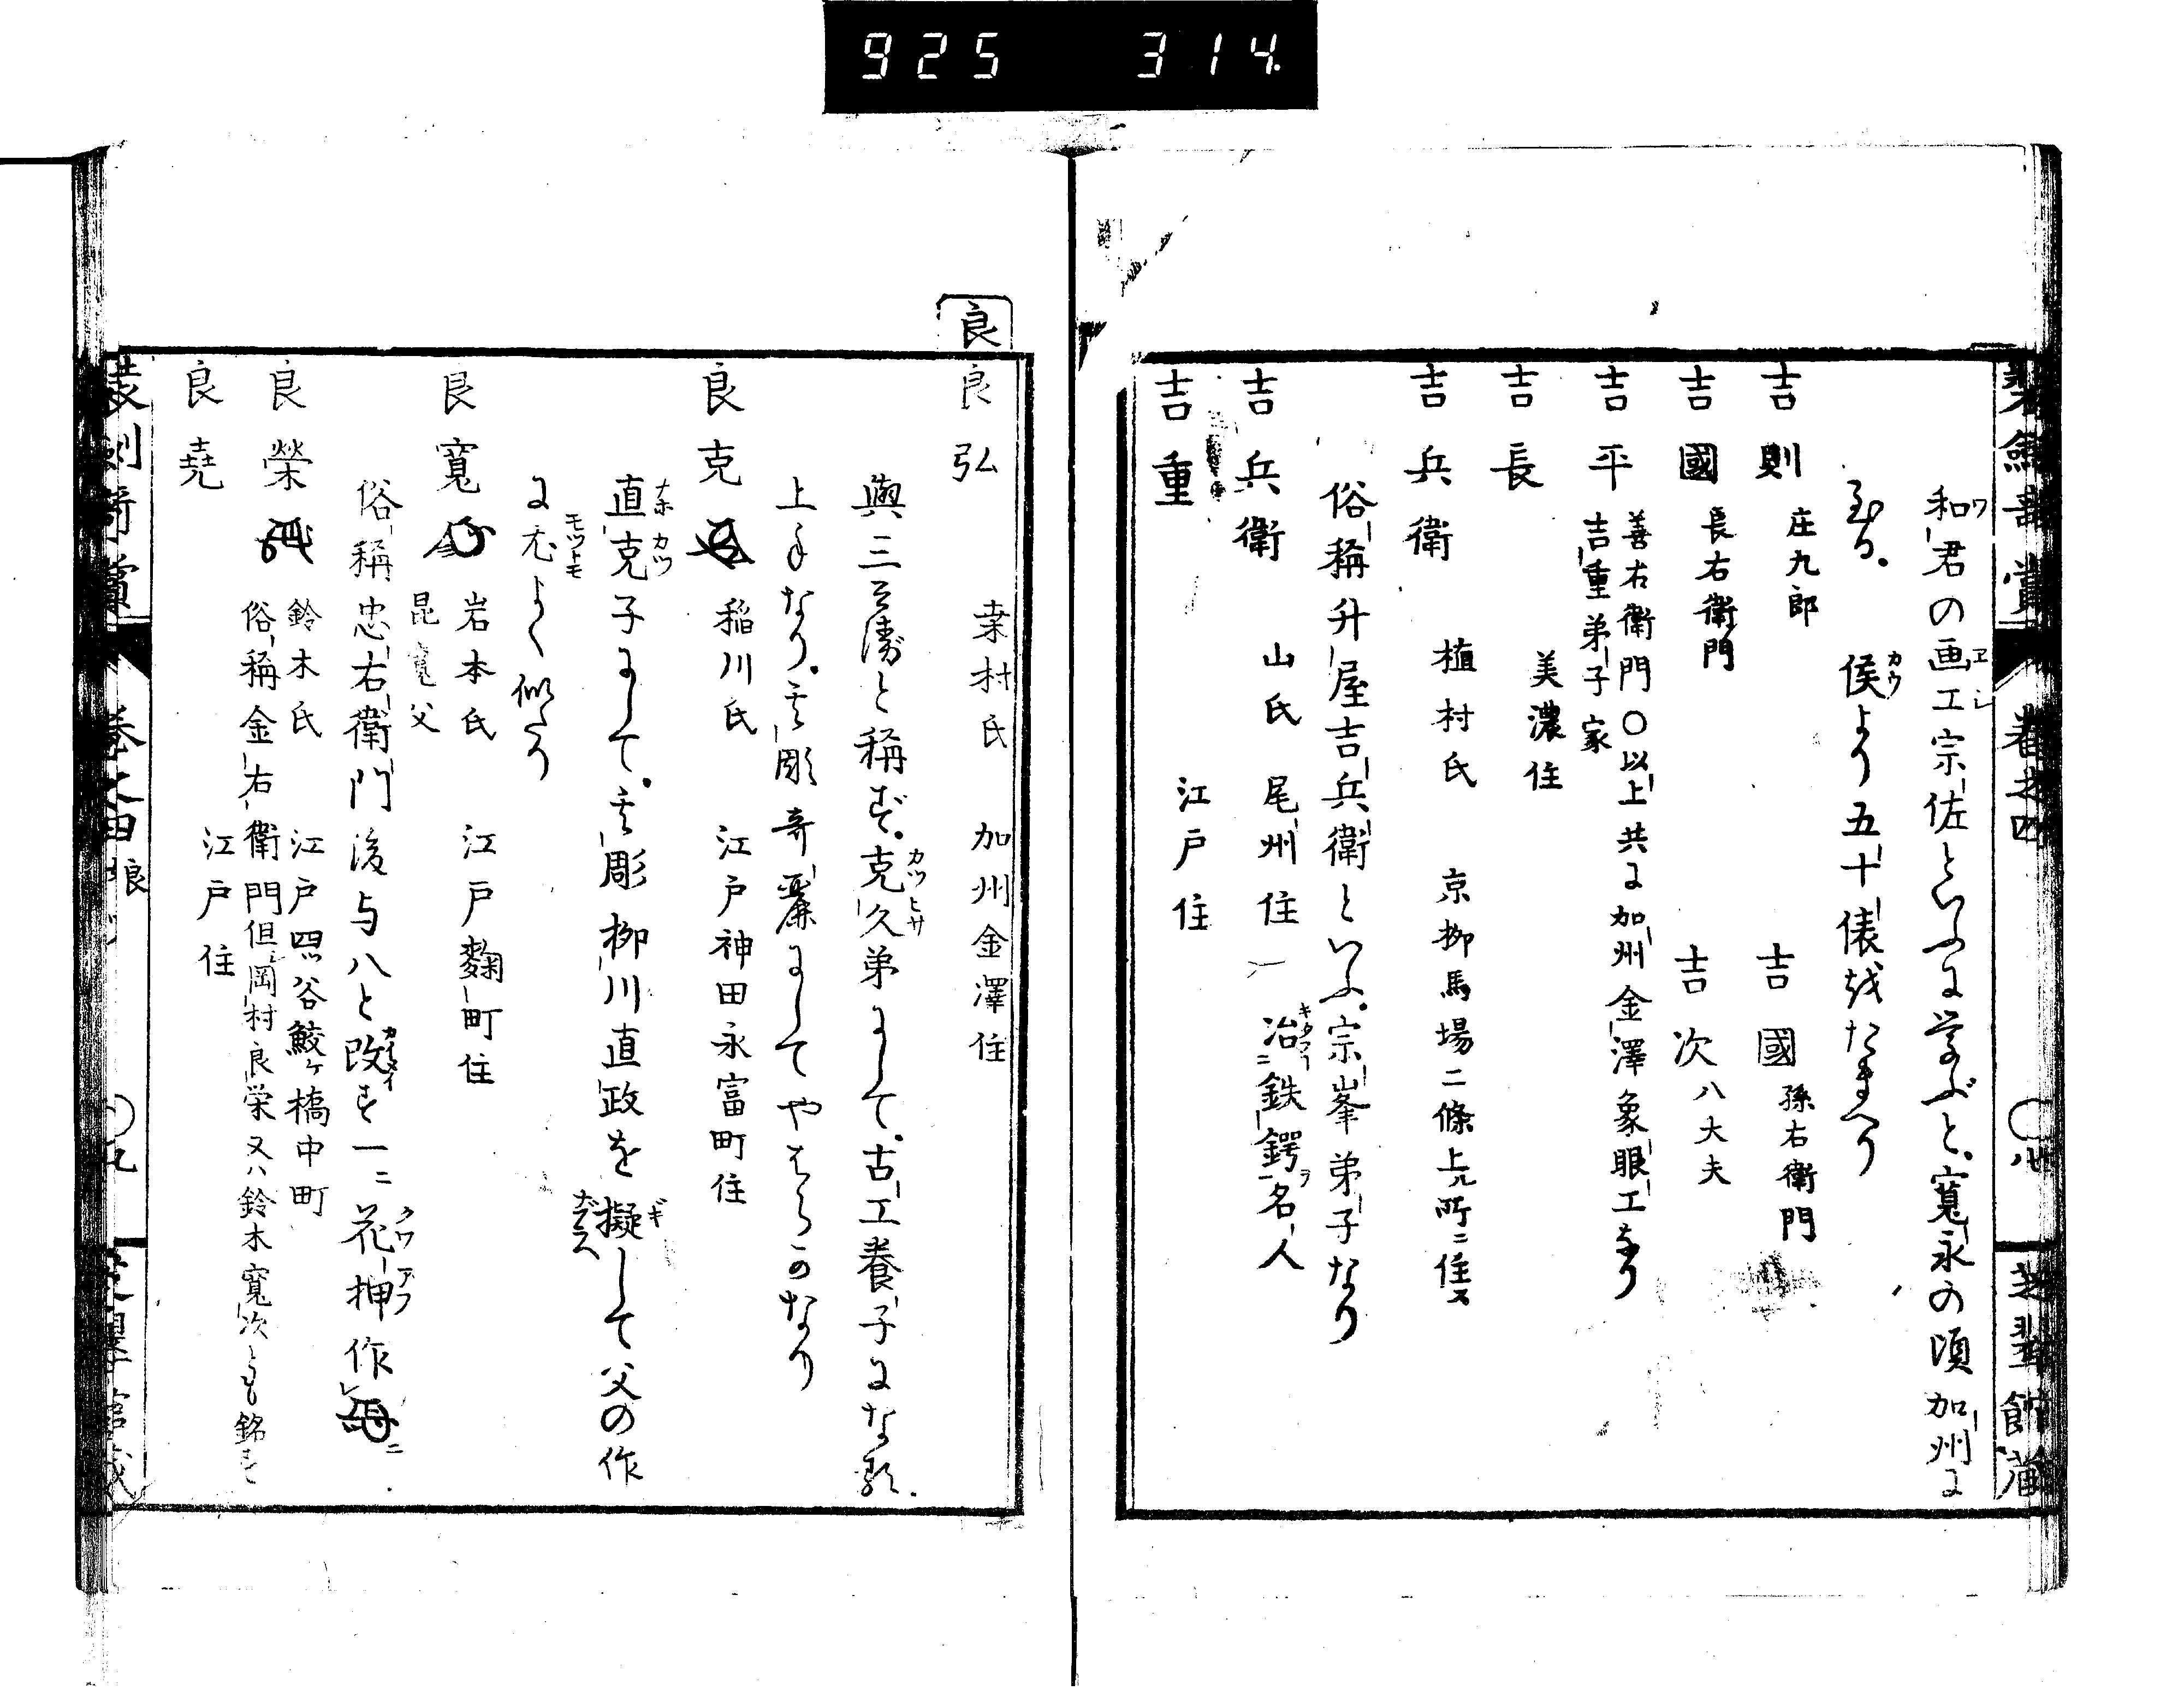 925 314
和君の画工宗佐といふに学ぶと。寛永の頃加州に
至る。 侯より五十俵越たまへり
吉則 庄九郎 吉國 孫右衛門
吉國 長右衛門 吉次 八大夫
吉平 善右衛門〇以上共に加州金澤象眼工なり
吉重弟子家
吉長 美濃住
吉兵衛 植村氏 京柳馬場二條上ル町ニ住ス
俗稱升屋吉兵衛といふ。宗峯弟子なり
吉兵衛 山氏 尾州住 冶ニ鉄鍔ヲ名人
吉重 江戸住
良
良弘 幸村氏 加州金澤住
與三兵衛と稱ず。克久弟にして。古工養子にな歟.
上手なり。其彫奇麗にしてやはらかなり
良克 稲川氏 江戸神田永富町住
直克子にして。其彫柳川直政を擬して父の作
に尤よく似たり
良寛 岩本氏 江戸麹町住
昆寛父
俗稱忠右衛門後与八と改ず一ニ花押作ル
良榮 鈴木氏 江戸四ツ谷鮫ヶ橋中町
俗稱金右衛門但岡村良栄又ハ鈴木寛次とも銘ず
良堯 江戸住
装劍奇賞 巻之四 〇九